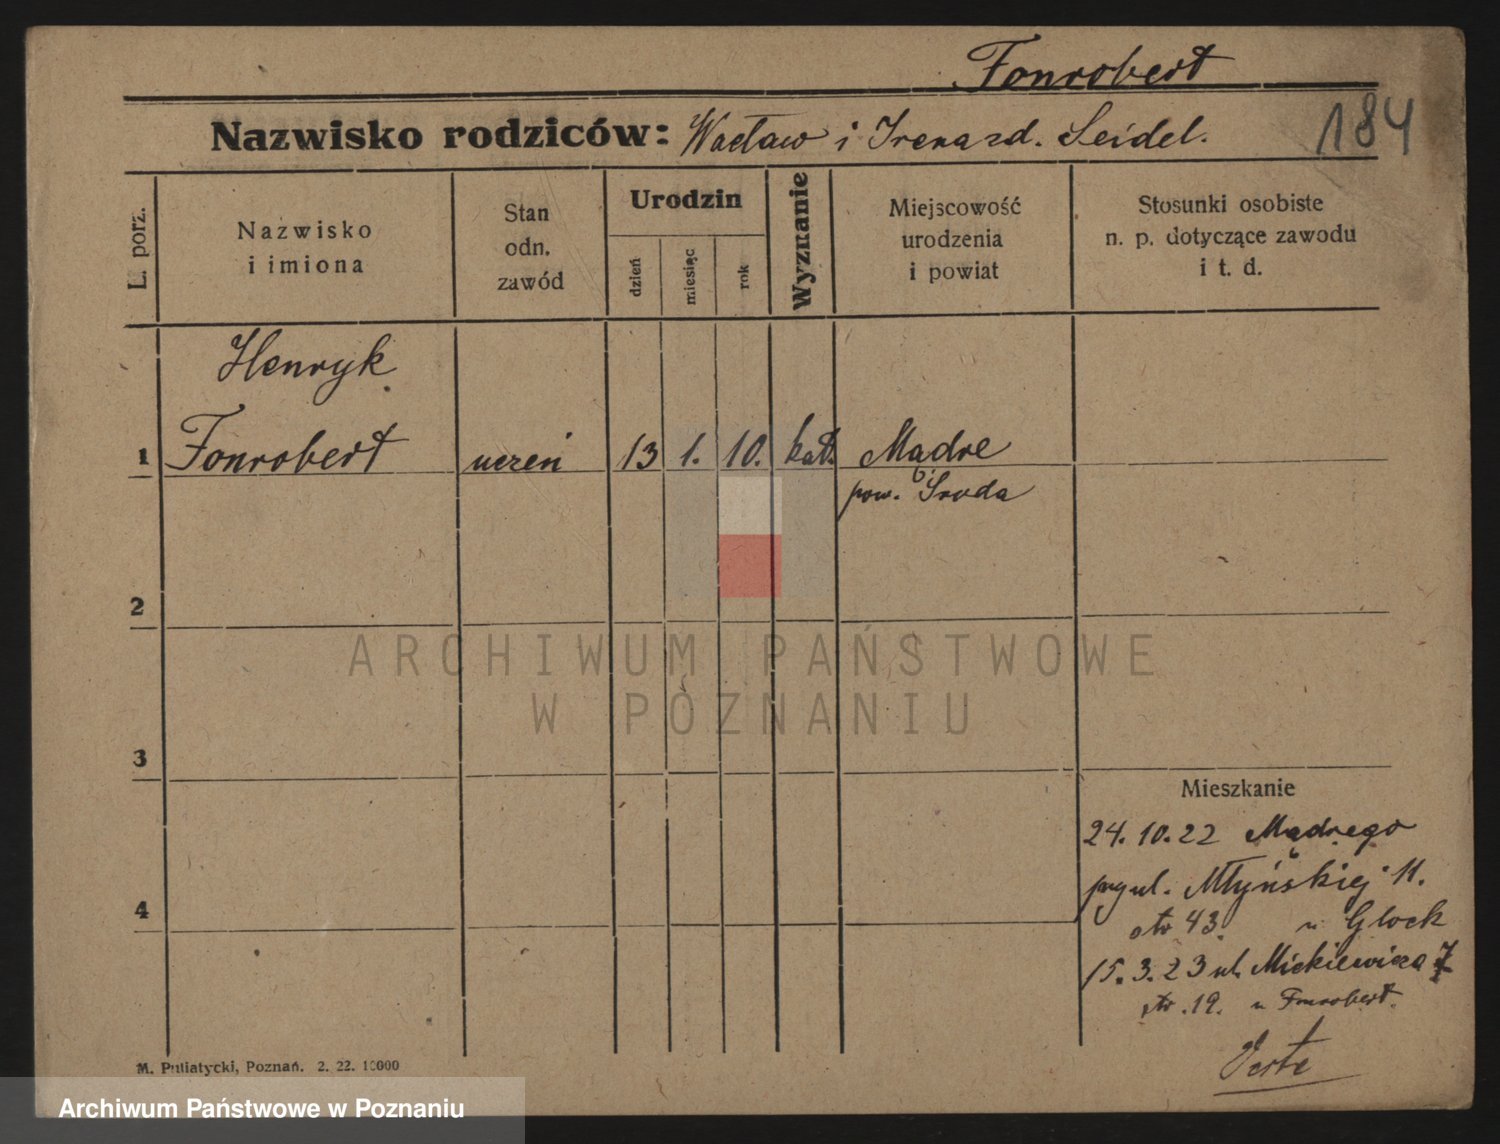 Fonrobert
184
Nazwisko rodziców: Wacław i Irena zd. Seidel.
L. porz.
Nazwisko
i imiona
Stan
odn.
zawód
Urodzin
dzień
miesiąc
rok
Wyznanie
Miejscowość
urodzenia
i powiat
Stosunki osobiste
n. p. dotyczące zawodu
i t. d.
Henryk
1 Fonrobert uczeń 13 1. 10. kat. Mądre
pow. Środa
2
ARCHIWUM PAŃSTWOWE
W POZNANIU
3
Mieszkanie
24.10.22 Mądrego
ul. Młyńskiej 11.
4
otr 43. u Glock
15.3.23 ul. Mickiewicza 7
otr. 19. u Fonrobert.
Verte
M. Putiatycki, Poznań. 2. 22. 10000
Archiwum Państwowe w Poznaniu